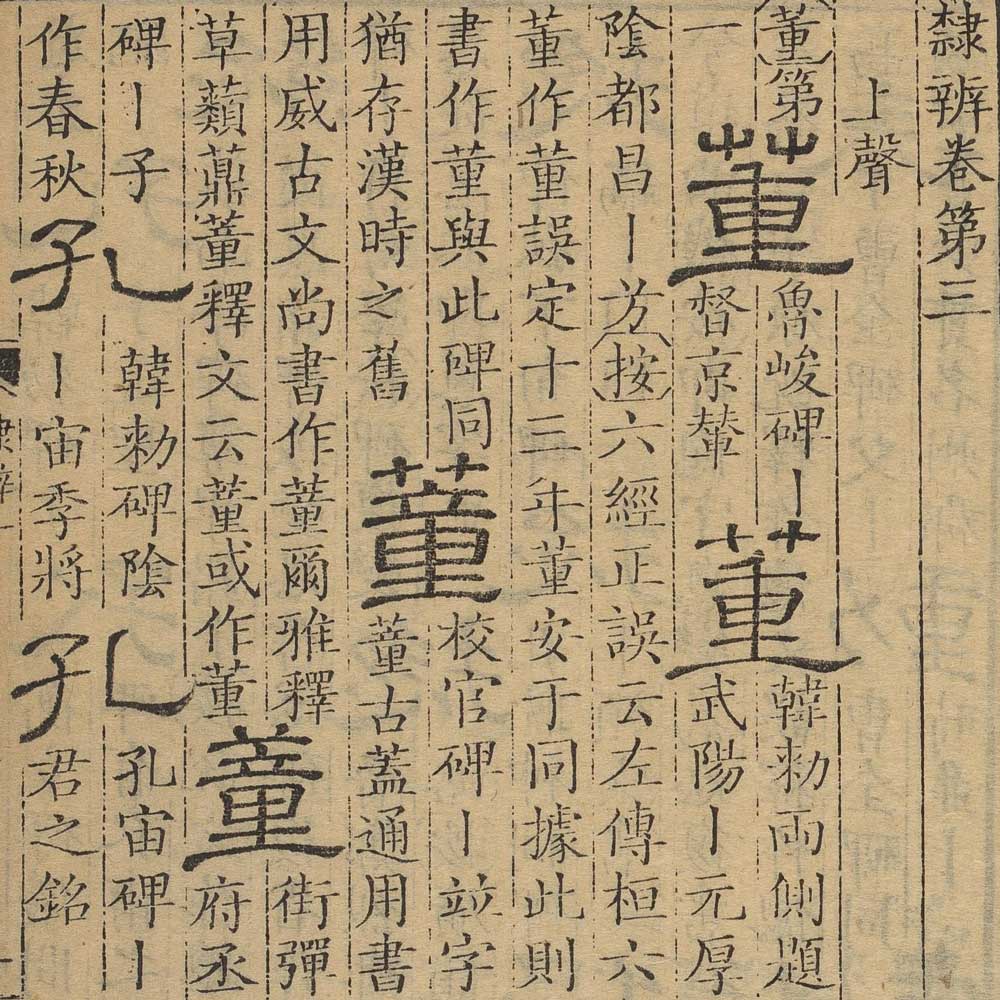 隸辨卷第三
上聲
董第
一
董
魯峻碑丨
督京輦
董
韓勑兩側題
武陽丨元厚
陰都昌丨方按六經正誤云左傳桓六
董作蕫誤定十三年董安于同據此則
書作蕫與此碑同
猶存漢時之舊
蕫
校官碑丨竝字
蕫古蓋通用書
用威古文尚書作蕫爾雅釋
草蘱薡蕫釋文云蕫或作董
蕫
街彈
府丞
碑丨子
作春秋
孔
韓勑碑陰
丨宙季將
孔
孔宙碑丨
君之銘